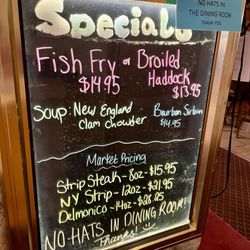 NO HATS IN
THE DINING ROOM
THANK YOU
Specials
Fish Fry or Broiled
$14.95 Haddock
$13.95
Soup: New England
Clam Chowder
Bourbon Sirloin
$14.95
Market Pricing
Strip Steak - 8oz - $15.95
NY Strip - 12oz - $21.95
Delmonico - 14oz - $28.95
NO HATS IN DINING ROOM!
Thanks!